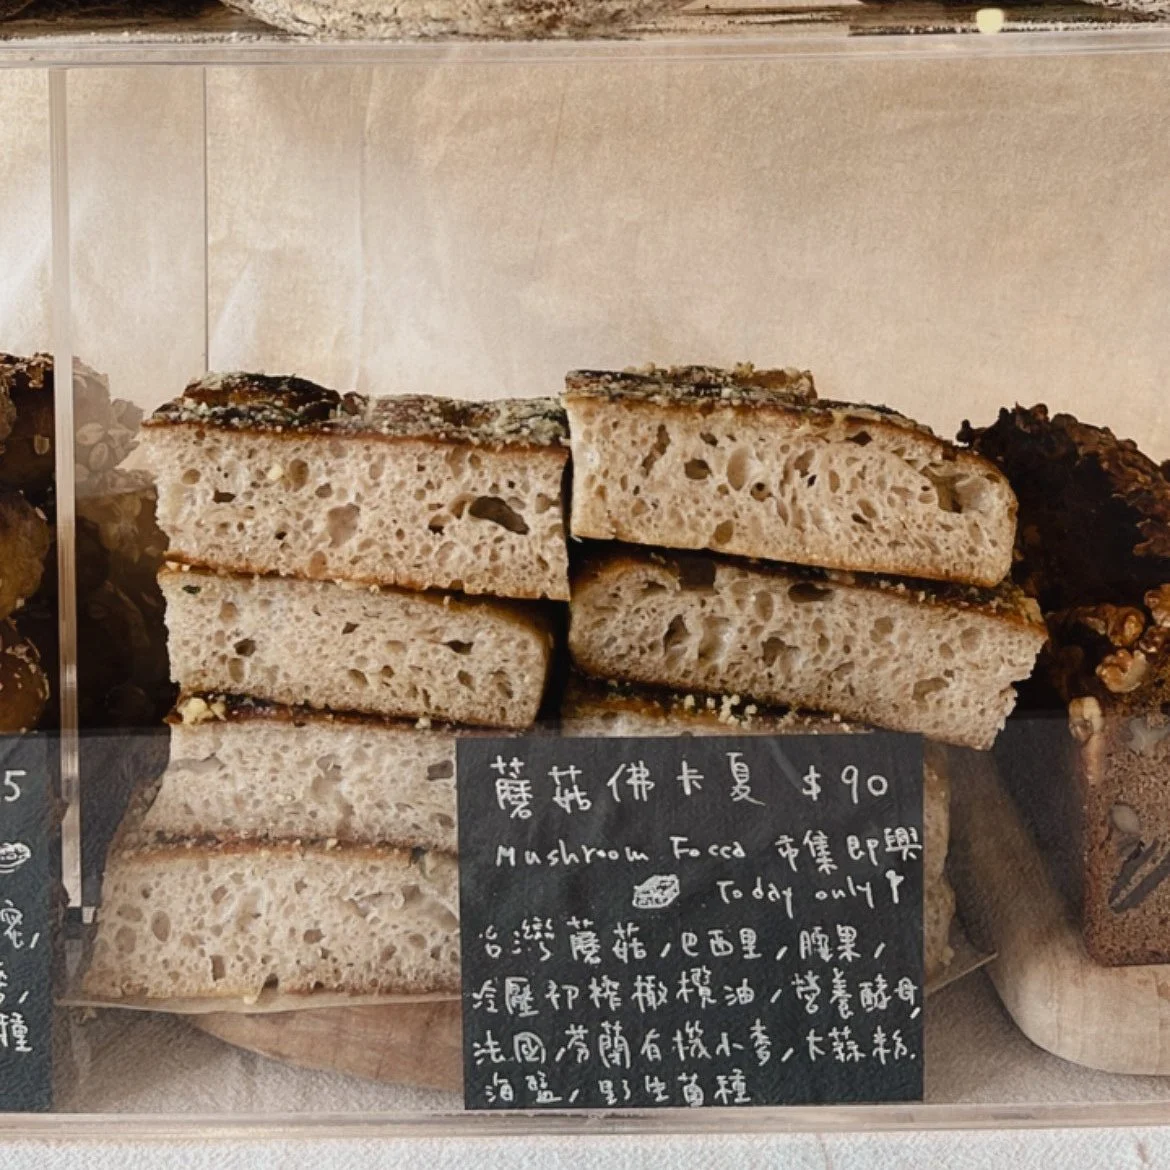 蘑菇佛卡夏 $90
Mushroom Focca 市集即興
Today only
台灣蘑菇,巴西里,腰果,
冷壓初榨橄欖油,營養酵母,
法國,芬蘭有機小麥,大蒜粉.
海鹽,野生菌種
5
蜜,
種